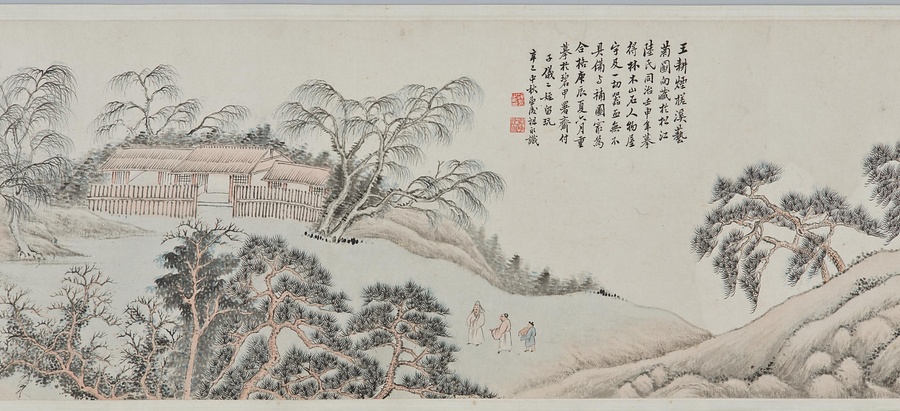 王耕煙槎溪藝
菊圖向藏於松江
陸氏同治壬申年摹
得林木山石人物屋
宇及一切器皿無不
具備與補圖寔為
合格庚辰夏六月重
摹於碧甲署齋付
子儀二姪留玩
辛巳中秋
識